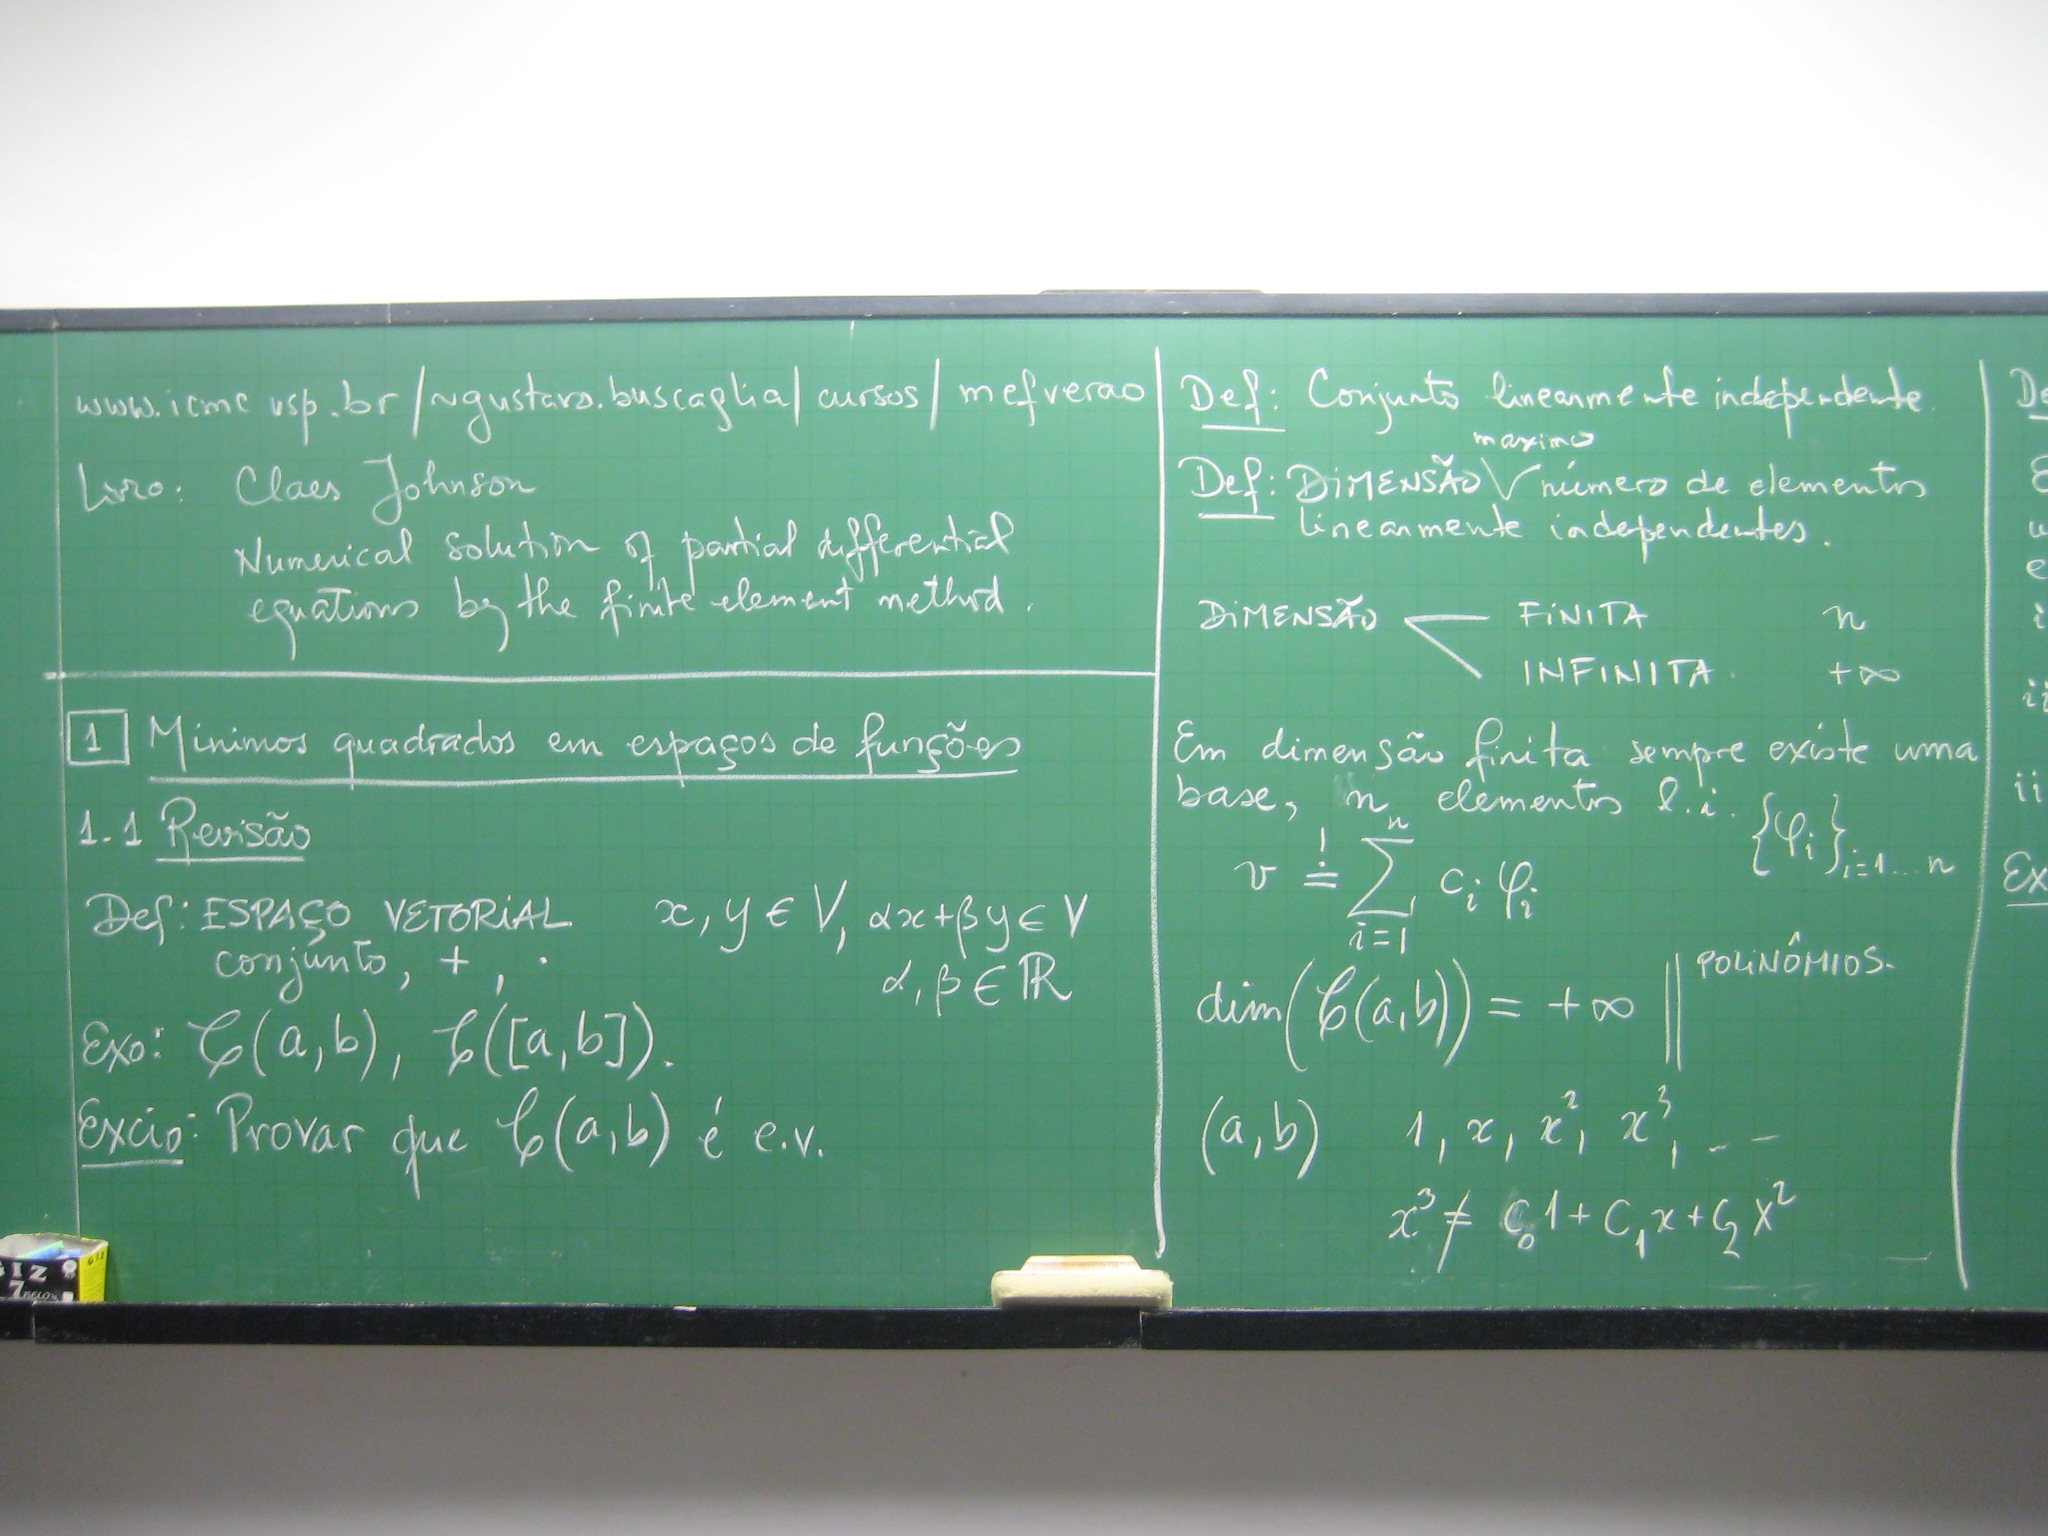 www.icmc usp.br/~gustavo.buscaglia/cursos/mefverao
Livro: Claes Johnson
Numerical solution of partial differential
equations by the finite element method.
1 Minimos quadrados em espaços de funções
1.1 Revisão
Def: ESPAÇO VETORIAL x, y ∈ V, αx+βy ∈ V
conjunto, +, · α, β ∈ ℝ
Exo: C(a,b), C([a,b]).
Excio: Provar que C(a,b) é e.v.
Def: Conjunto linearmente independente.
maximo
Def: DIMENSÃO número de elementos
linearmente independentes.
DIMENSÃO FINITA n
INFINITA. +∞
Em dimensão finita sempre existe uma
base, n elementos l.i. {φi}i=1...n
v =! ∑_{i=1}^{n} ci φi
dim(C(a,b)) = +∞ || POLINÔMIOS.
(a,b) 1, x, x², x³, ...
x³ ≠ C₀1+C₁x+C₂x²
De
u
e
i
ii
ii
Ex
GIZ